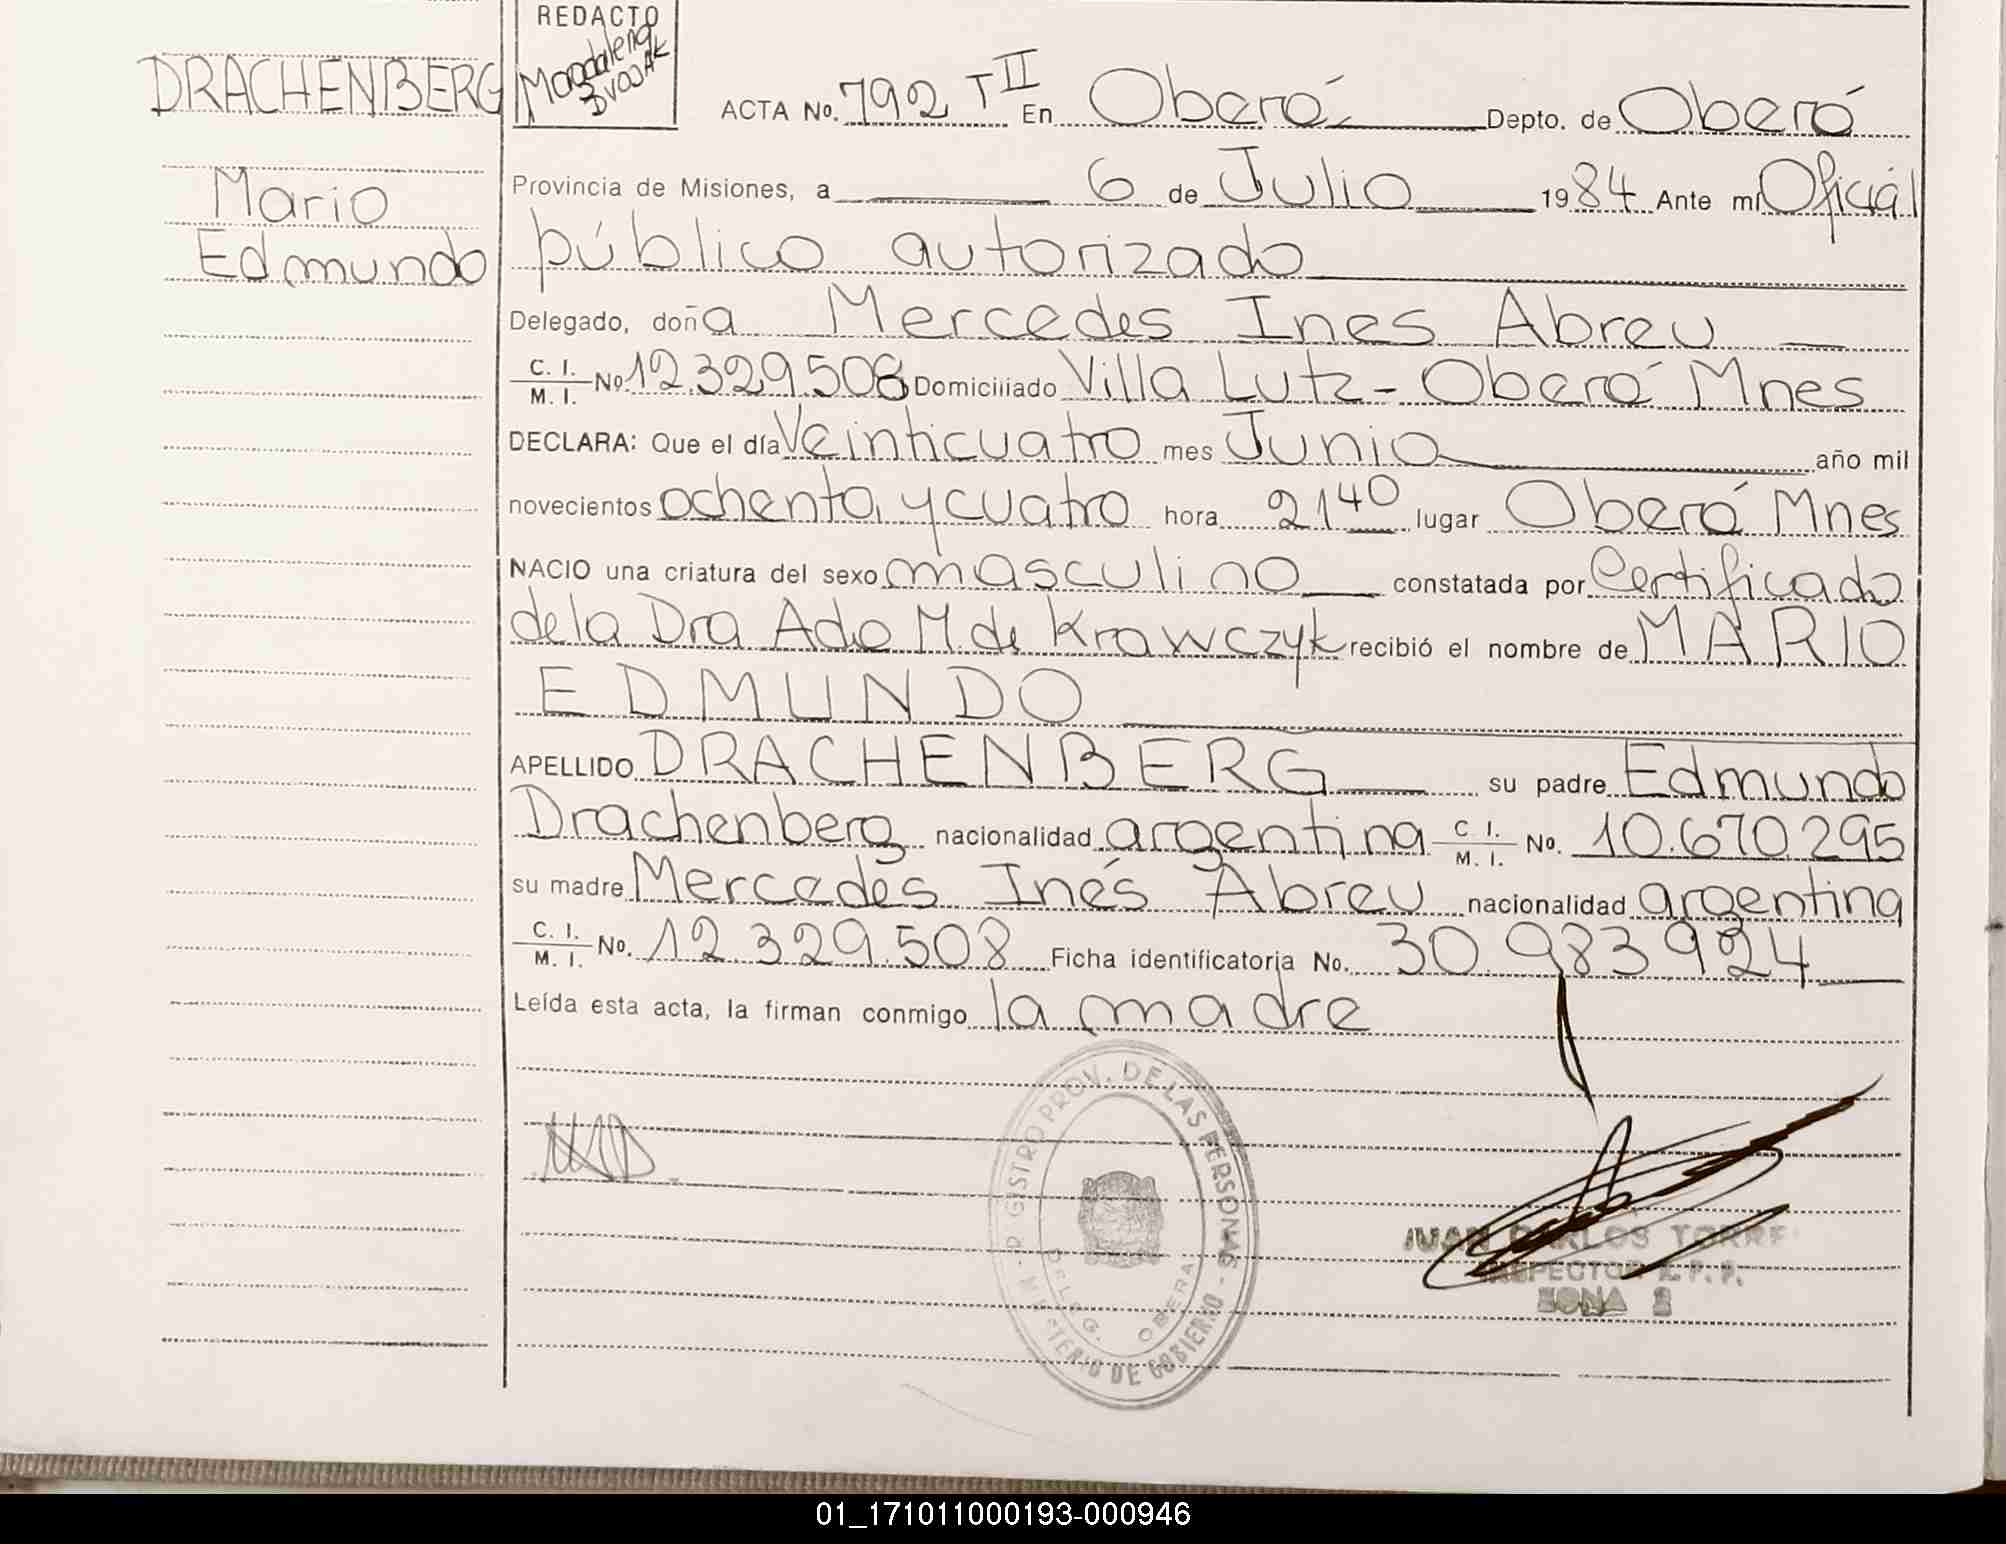 REDACTO
Magdalena
DVOJAK
DRACHENBERG
Mario
Edmundo
ACTA No. 792 T II En Oberá Depto. de Oberá
Provincia de Misiones, a 6 de Julio 1984 Ante mí Oficial
público autorizado
Delegado, doña Mercedes Ines Abreu
C. I. / M. I. No. 12.329.508 Domiciliado Villa Lutz - Oberá Mnes
DECLARA: Que el día Veinticuatro mes Junio año mil
novecientos ochenta y cuatro hora 21 40 lugar Oberá Mnes
NACIO una criatura del sexo masculino constatada por Certificado
de la Dra Ada M. de Krawczyk recibió el nombre de MARIO
EDMUNDO
APELLIDO DRACHENBERG su padre Edmundo
Drachenberg nacionalidad argentina C. I. / M. I. No. 10.670.295
su madre Mercedes Inés Abreu nacionalidad argentina
C. I. / M. I. No. 12.329.508 Ficha identificatoria No. 30.983924
Leída esta acta, la firman conmigo la madre
REGISTRO PROV. DE LAS PERSONAS - MINISTERIO DE GOBIERNO -
DELEG. OBERA
JUAN CARLOS TORRE
INSPECTOR R. P. P.
ZONA 2
01_171011000193-000946